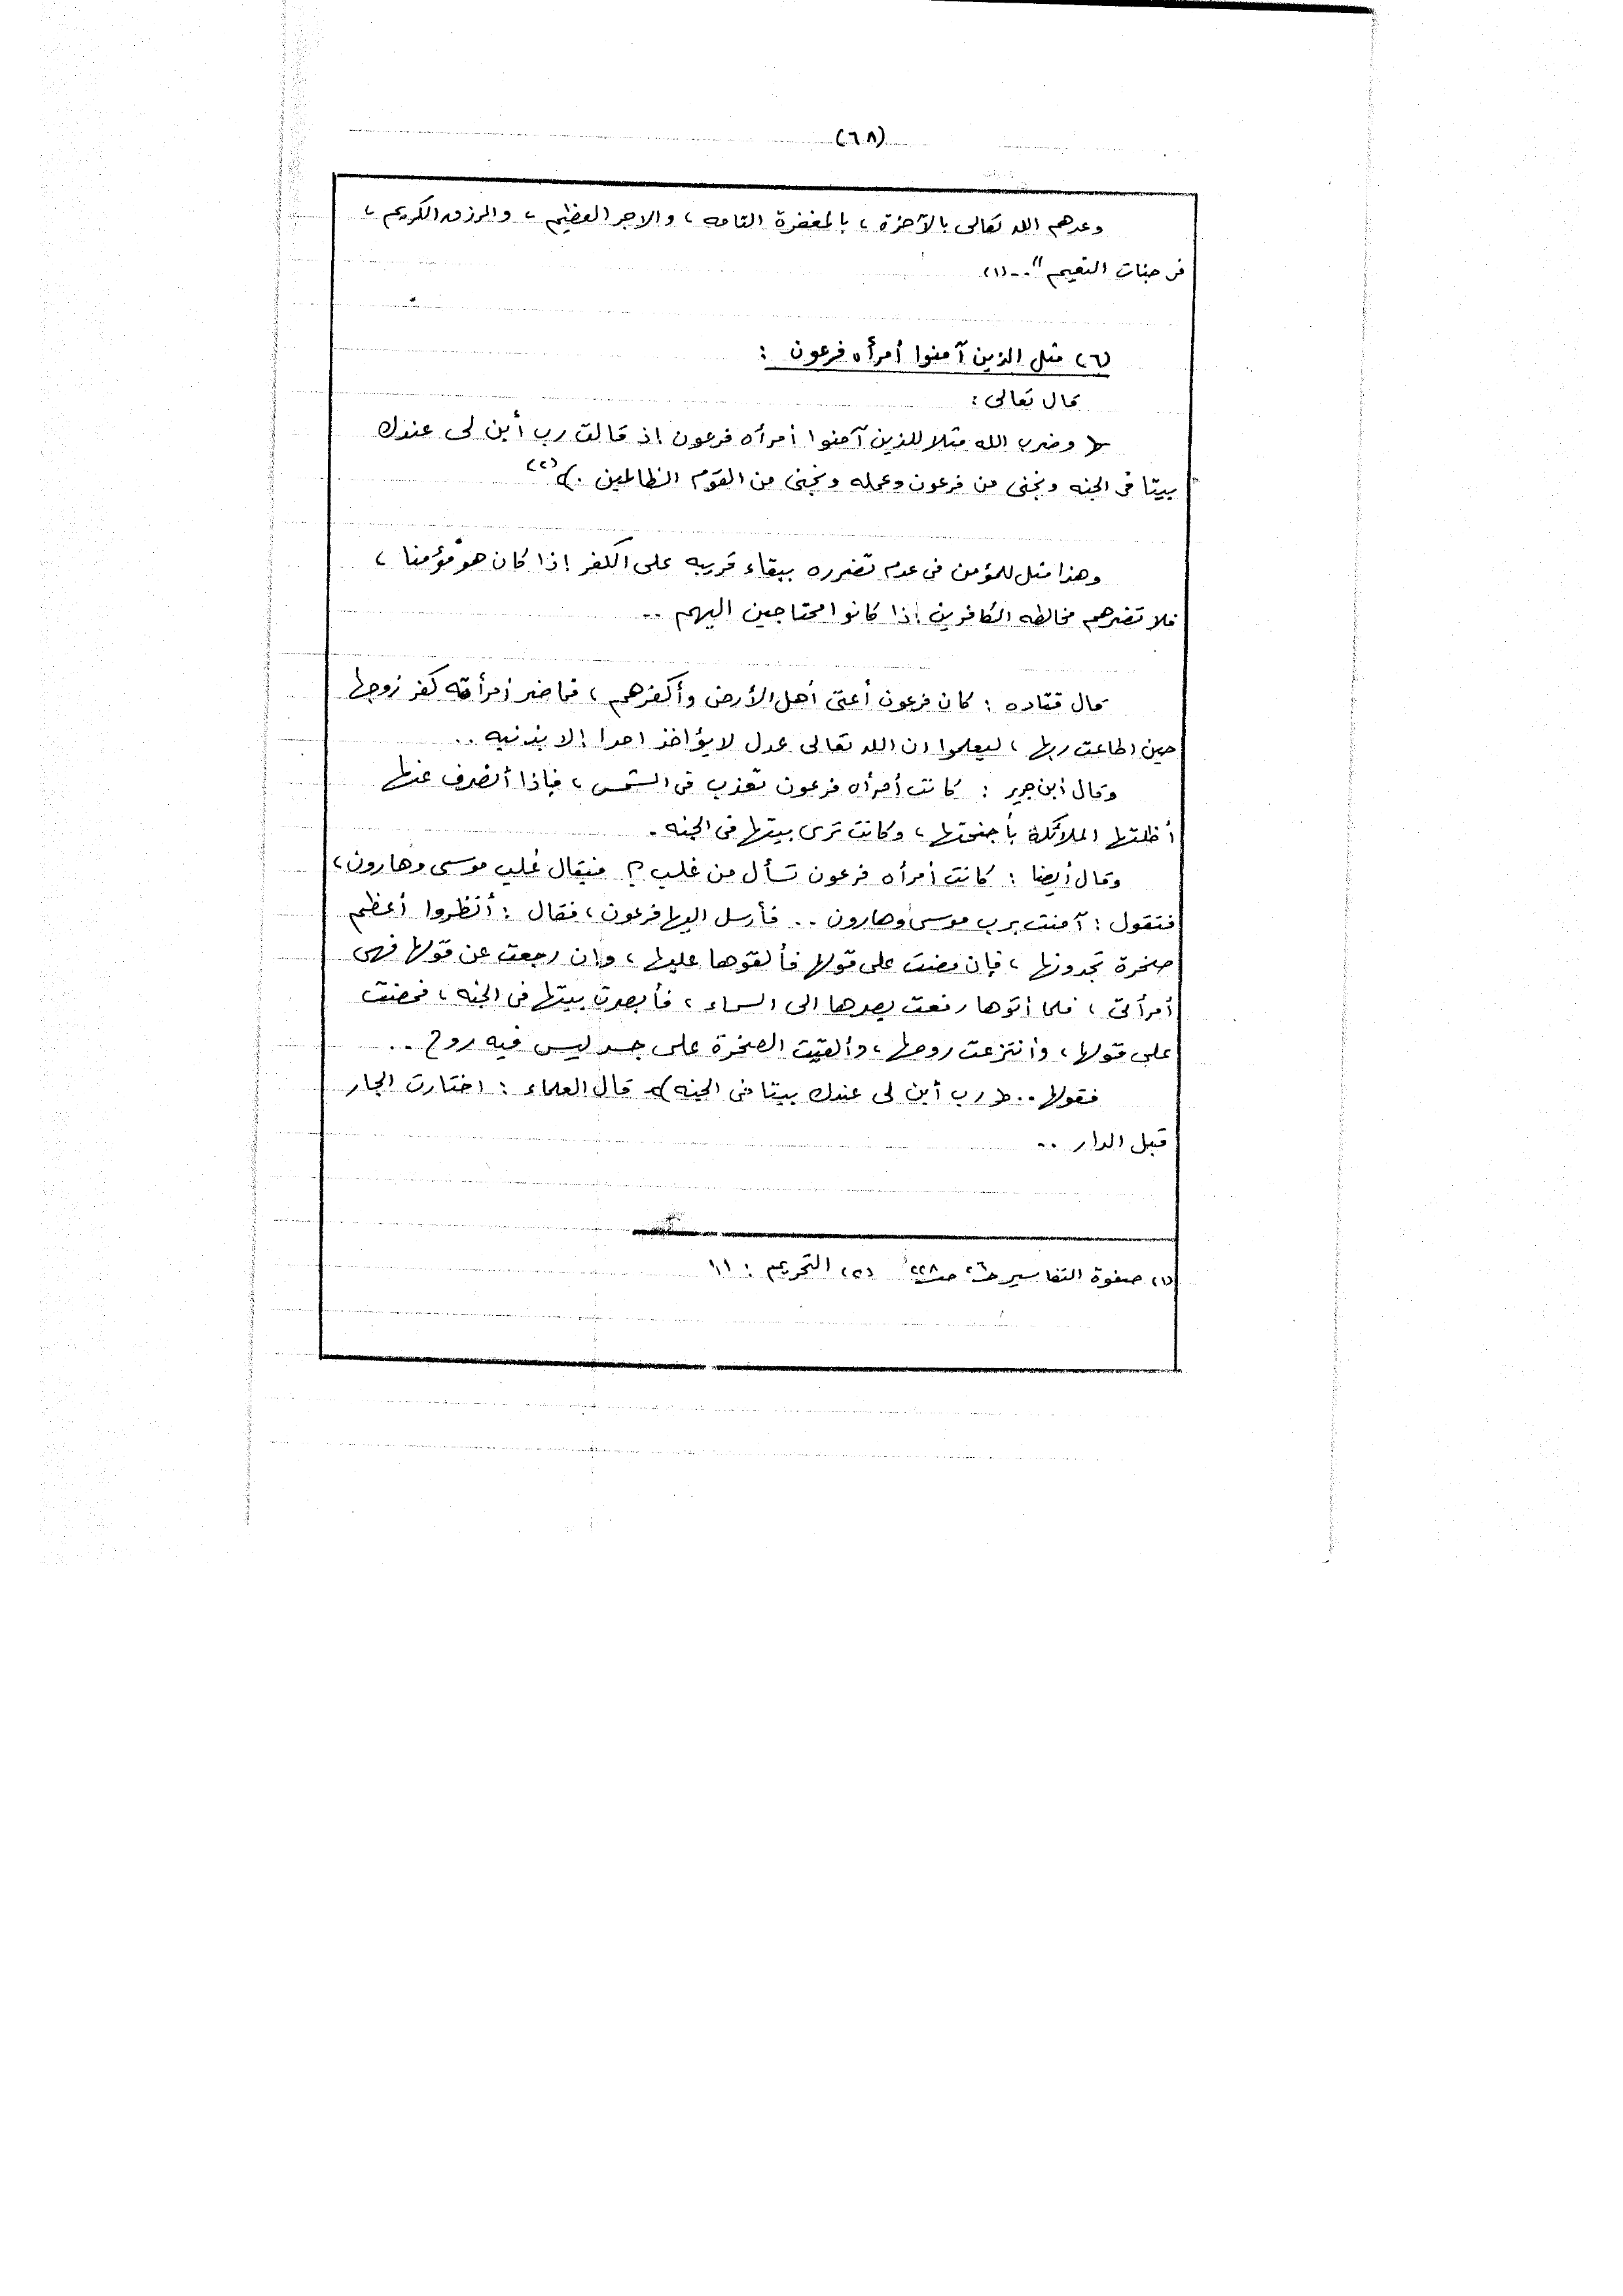 (٦٨)
وعدهم الله تعالى بالآخرة ، بالمغفرة التامه ، والاجر العظيم ، والرزق الكريم ،
فى جنات النعيم " .. (١)
(٦) مثل الذين آمنوا أمرأه فرعون :
قال تعالى :
﴿ وضرب الله مثلا للذين آمنوا أمرأه فرعون إذ قالت رب أبن لى عندك
بيتا فى الجنه ونجنى من فرعون وعمله ونجنى من القوم الظالمين . ﴾ (٢)
وهذا مثل للمؤمن فى عدم تضرره ببقاء قريبه على الكفر إذا كان هو مؤمنا ،
فلا تضرهم مخالطه الكافرين إذا كانوا محتاجين اليهم ..
قال قتاده : كان فرعون أعتى أهل الأرض وأكفرهم ، فما ضر أمرأته كفر زوجها
حين اطاعت ربها ، ليعلموا ان الله تعالى عدل لا يؤاخذ احدا إلا بذنبه ..
وقال أبن جرير : كانت أمرأه فرعون تعذب فى الشمس ، فإذا أنصرف عنها
أظلتها الملائكة بأجنحتها ، وكانت ترى بيتها فى الجنه .
وقال أيضا : كانت أمرأه فرعون تسأل من غلب ؟ فيقال غلب موسى وهارون ،
فتقول : آمنت برب موسى وهارون .. فأرسل اليها فرعون ، فقال : أنظروا أعظم
صخرة تجدونها ، فإن مضت على قولها فألقوها عليها ، وإن رجعت عن قولها فهى
أمرأتى ، فلما أتوها رفعت بصرها الى السماء ، فأبصرت بيتها فى الجنه ، فمضت
على قولها ، وأنتزعت روحها ، وألقيت الصخرة على جسد ليس فيه روح ..
فقولها .. ﴿ رب أبن لى عندك بيتا فى الجنه ﴾ قال العلماء : اختارت الجار
قبل الدار ..
(١) صفوة التفاسير (٢) التحريم : ١١